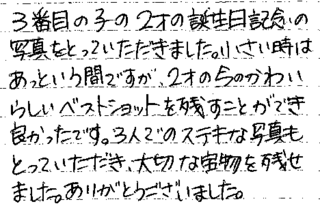 3番目の子の2才の誕生日記念の
写真をとっていただきました。小さい時は
あっという間ですが、2才の今のかわい
らしいベストショットを残すことができ
良かったです。3人でのステキな写真も
とっていただき、大切な宝物を残せ
ました。ありがとうございました。